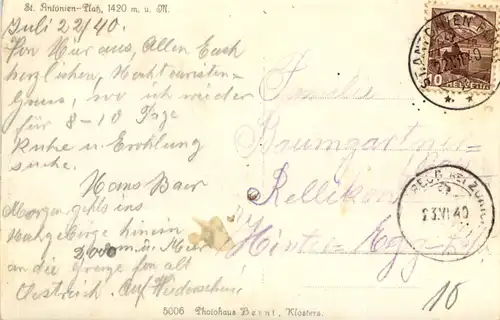 St. Antönien-Platz, 1420 m. u. M.
Juli 22/40.
Von Hier aus, Allen Euch
herzlichen,
Gruss, wo ich wieder
für 8-10 Tage
Ruhe u Erohlung
suche.
Hans Baer
Morgen gehts ins
Hochgeberge hinein
2000 m. ü. Meer
an die Grenze fon alt
Oestreich. Auf Wiedersehen!
Familie
Baumgartner-
Rellikon
Hinter-Egg
10
ST. ANTÖNIEN
HELVETIA
10
23.VI.40
5006 Photohaus Berni, Klosters.